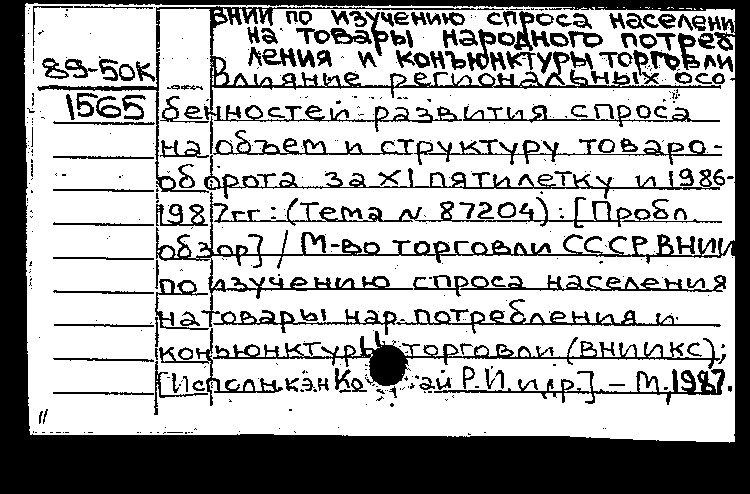 ВНИИ по изучению спроса населени
на товары народного потреб
ления и конъюнктуры торговли
89-50К
Влияние региональных осо-
1565
бенностей развития спроса
на объем и структуру товаро-
оборота за XI пятилетку и 1986-
1987гг: (Тема N 87204): [Пробл.
обзор] / М-во торговли СССР, ВНИИ
по изучению спроса населения
на товары нар. потребления и
конъюнктуры торговли (ВНИИКС);
[Исполн. к.э.н. Р.И. и др.]. – М., 1987.